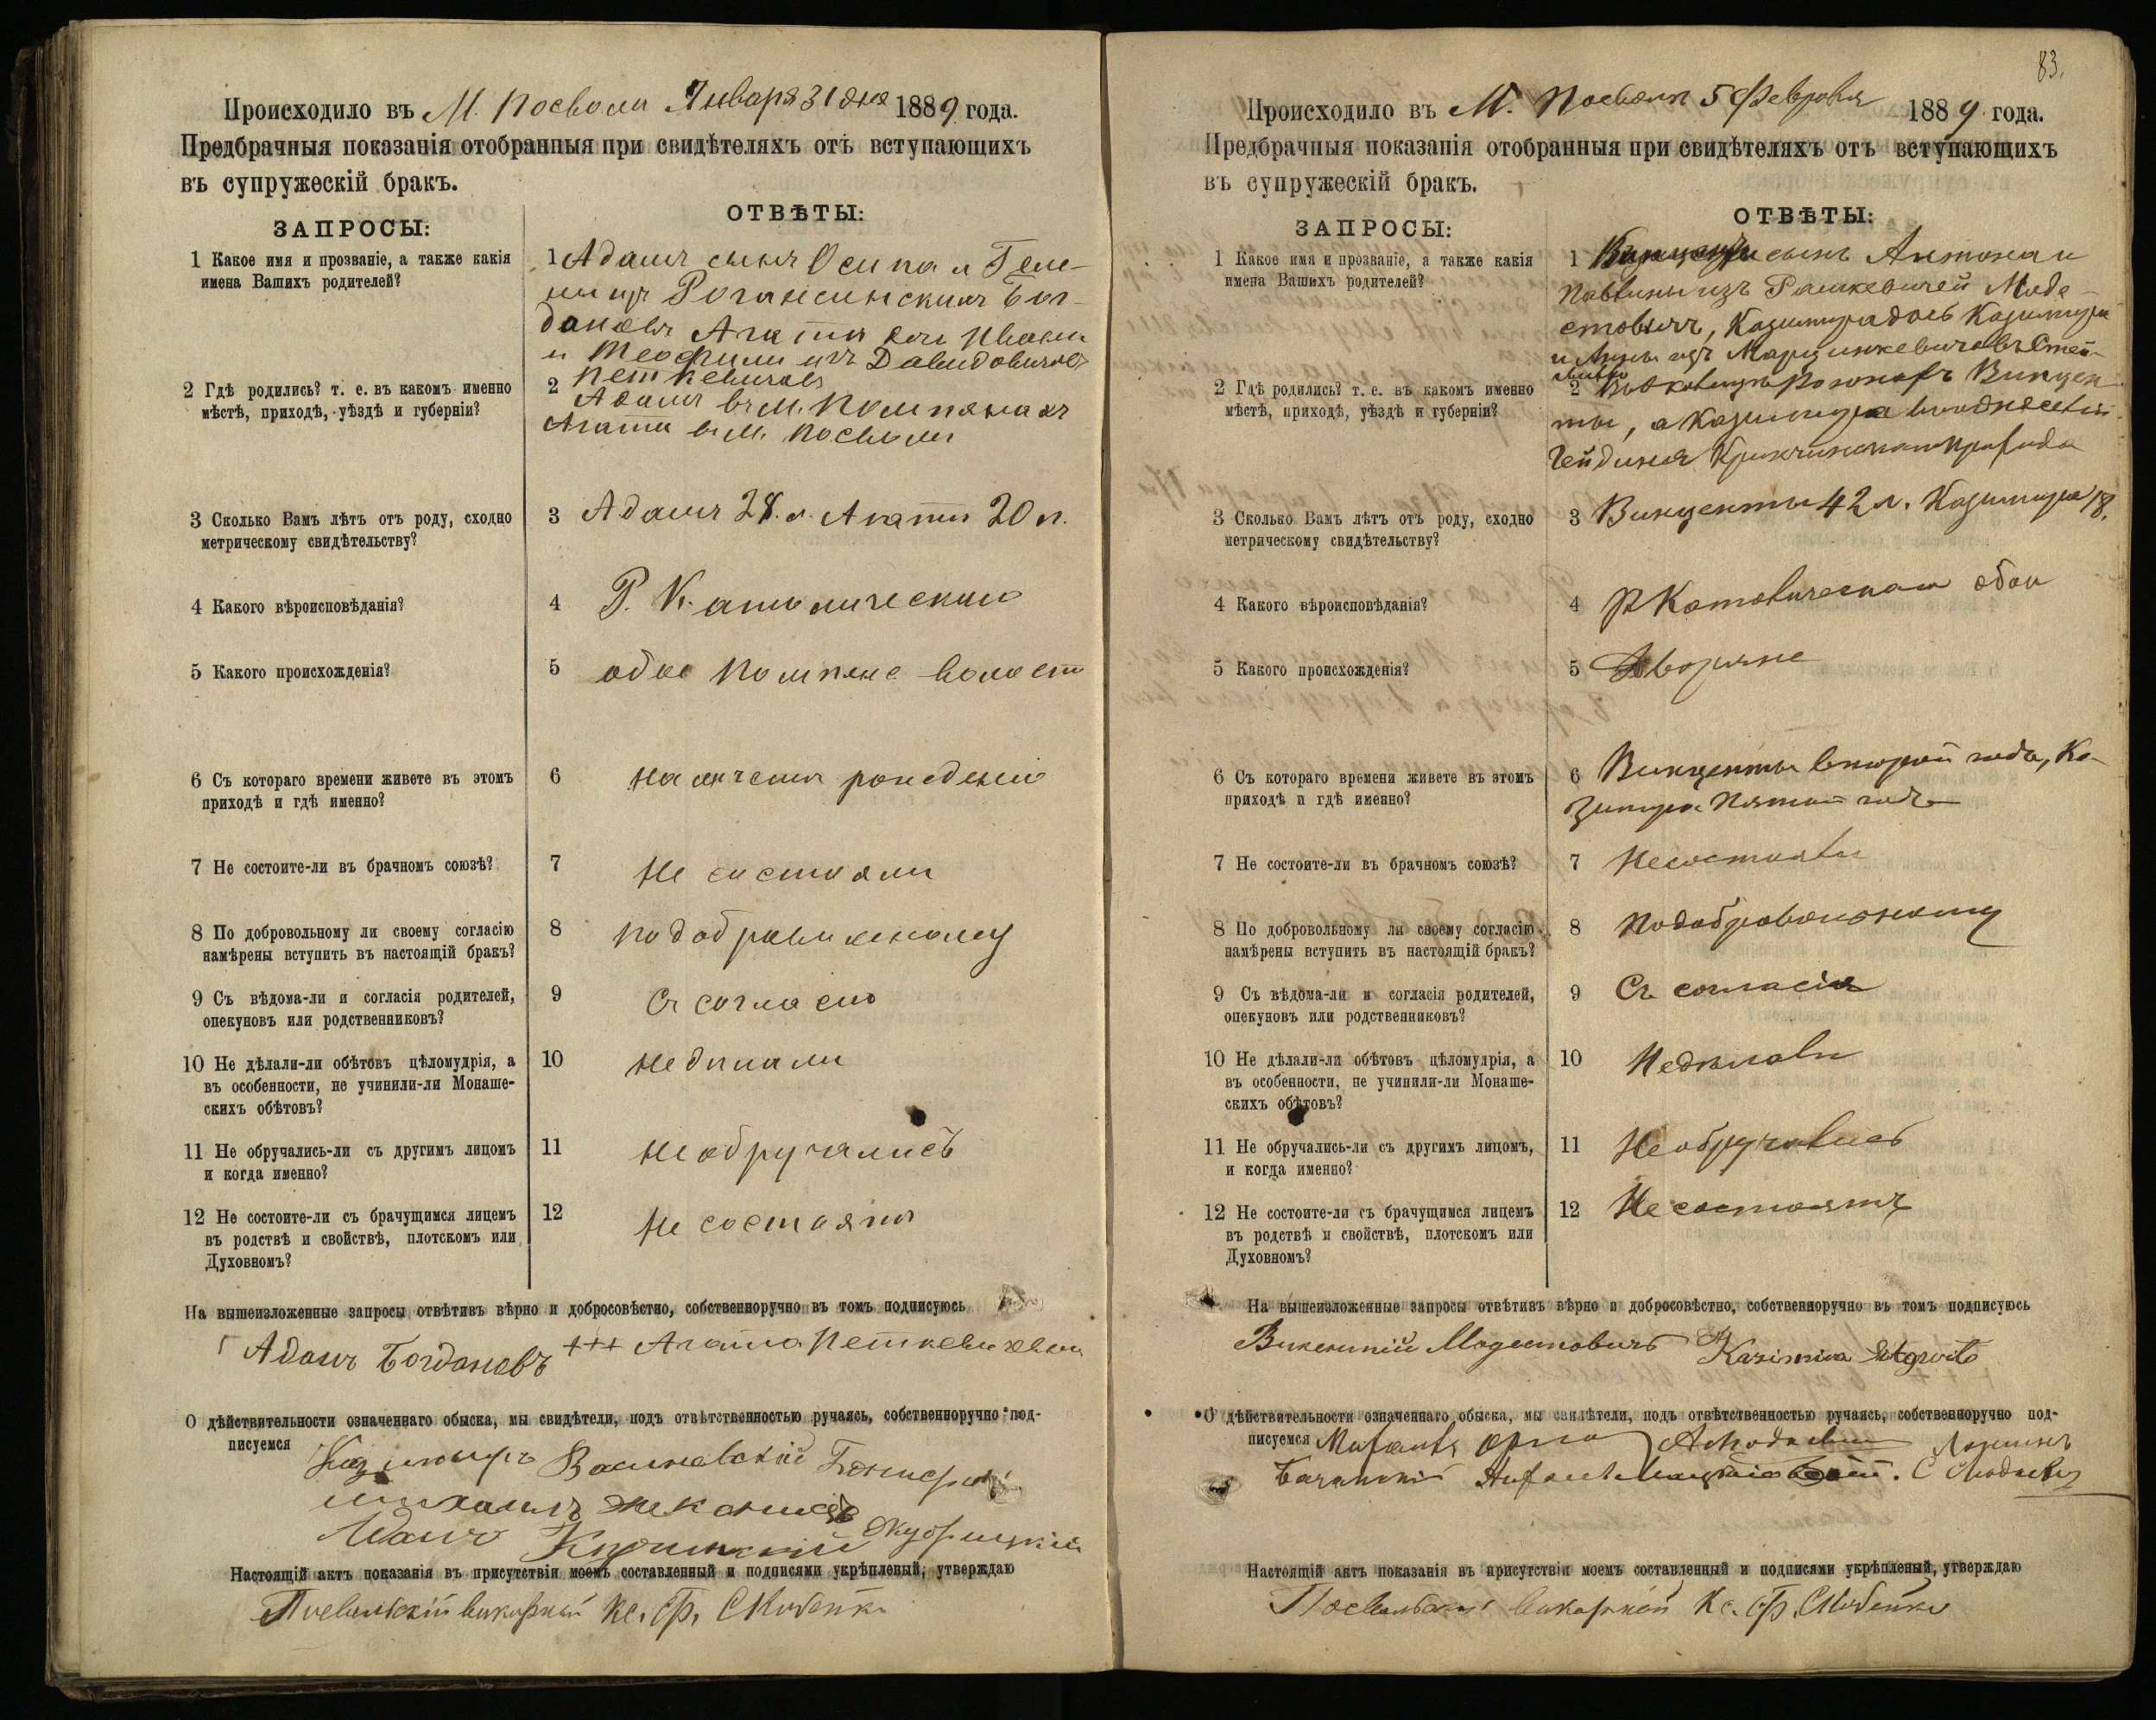 Происходило въ М. Посволи Января 31 дня 1889 года.
Предбрачныя показанія отобранныя при свидѣтеляхъ отъ вступающихъ
въ супружескій бракъ.
ЗАПРОСЫ:
ОТВѢТЫ:
1 Какое имя и прозваніе, а также какія
имена Вашихъ родителей?
1 Адамъ сынъ Осипа и Геле-
ны изъ Бог-
дановъ Агата дочь Ивана
и Теофили изъ Давидовичовъ
Петкевичовъ
2 Гдѣ родились? т. е. въ какомъ именно
мѣстѣ, приходѣ, уѣздѣ и губерніи?
2 Адамъ въ м. Помпянахъ
Агата въ м. Посволи
3 Сколько Вамъ лѣтъ отъ роду, сходно
метрическому свидѣтельству?
3 Адамъ 28. л. Агата 20 л.
4 Какого вѣроисповѣданія?
4 Р. Католическаго
5 Какого происхожденія?
5 обое Помпяне волост
6 Съ котораго времени живете въ этомъ
приходѣ и гдѣ именно?
6
7 Не состоите-ли въ брачномъ союзѣ?
7 Не состояли
8 По добровольному ли своему согласію
намѣрены вступить въ настоящій бракъ?
8 По добровольному
9 Съ вѣдома-ли и согласія родителей,
опекуновъ или родственниковъ?
9 Съ согласія
10 Не дѣлали-ли обѣтовъ цѣломудрія, а
въ особенности, не учинили-ли Монаше-
скихъ обѣтовъ?
10 Не дѣлали
11 Не обручались-ли съ другимъ лицомъ
и когда именно?
11 Не обручались
12 Не состоите-ли съ брачущимся лицемъ
въ родствѣ и свойствѣ, плотскомъ или
Духовномъ?
12 Не состояли
На вышеизложенные запросы отвѣтивъ вѣрно и добросовѣстно, собственноручно въ томъ подписуюсь
Адамъ Богдановъ +++ Агата
О дѣйствительности означеннаго обыска, мы свидѣтели, подъ отвѣтственностью ручаясь, собственноручно под-
писуемся Казимиръ
Михаилъ
Адамъ
Настоящій актъ показанія въ присутствіи моемъ составленный и подписями укрѣпленый, утверждаю
Посвольскій викарный Кс.
83.
Происходило въ М. Посволи 5 Февраля 1889 года.
Предбрачныя показанія отобранныя при свидѣтеляхъ отъ вступающихъ
въ супружескій бракъ.
ЗАПРОСЫ:
ОТВѢТЫ:
1 Какое имя и прозваніе, а также какія
имена Вашихъ родителей?
1 сынъ Антона и
Павлины изъ Рашкевичей Моде-
стовичъ, Казимира дочь Казимира
и Анны изъ Марцинкевичовъ
2 Гдѣ родились? т. е. въ какомъ именно
мѣстѣ, приходѣ, уѣздѣ и губерніи?
2 Винцен-
ты, а Казимира
прихода
3 Сколько Вамъ лѣтъ отъ роду, сходно
метрическому свидѣтельству?
3 Винценты 42 л. Казимира 18.
4 Какого вѣроисповѣданія?
4 Р Католическаго обои
5 Какого происхожденія?
5 Дворяне
6 Съ котораго времени живете въ этомъ
приходѣ и гдѣ именно?
6 Винценты второй годъ, Ка-
зимира пятый годъ
7 Не состоите-ли въ брачномъ союзѣ?
7 Несостояли
8 По добровольному ли своему согласію
намѣрены вступить въ настоящій бракъ?
8 Подобровольному
9 Съ вѣдома-ли и согласія родителей,
опекуновъ или родственниковъ?
9 Съ согласія
10 Не дѣлали-ли обѣтовъ цѣломудрія, а
въ особенности, не учинили-ли Монаше-
скихъ обѣтовъ?
10 Недѣлали
11 Не обручались-ли съ другихъ лицомъ,
и когда именно?
11 Не обручались
12 Не состоите-ли съ брачущимся лицемъ
въ родствѣ и свойствѣ, плотскомъ или
Духовномъ?
12 Не состоятъ
На вышеизложенные запросы отвѣтивъ вѣрно и добросовѣстно, собственноручно въ томъ подписуюсь
Викентій Модестовичъ Kazimira
О дѣйствительности означеннаго обыска, мы свидѣтели, подъ отвѣтственностью ручаясь, собственноручно под-
писуемся
Настоящій актъ показанія въ присутствіи моемъ составленный и подписями укрѣпленый, утверждаю
Посвольскій викарный Кс.